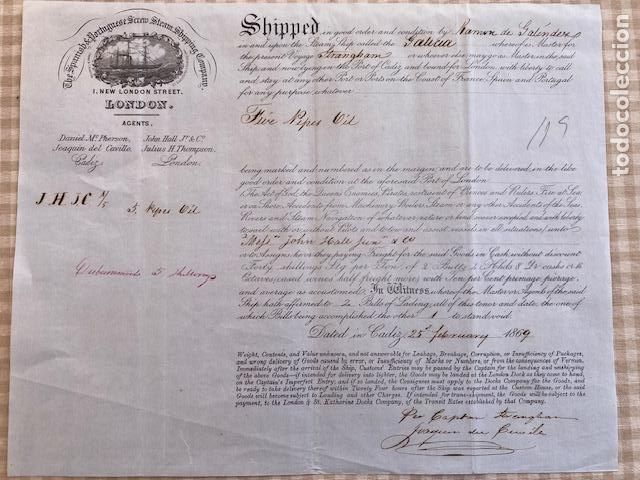 The Spanish & Portuguese Screw Steam Shipping Company.
1, NEW LONDON STREET,
LONDON.
AGENTS,
Daniel McPherson, John Hall Jr. & Co.
Joaquin del Cuvillo, Julius H. Thompson,
Cadiz. London.
J H J C 1/5 5 Pipes Oil
5 Shillings
Shipped in good order and condition by Ramon de
in and upon the Steam Ship called the whereof is Master for
the present Voyage Stranghan or whoever else may go as Master in the said
Ship and now lying in the Port of Cadiz and bound for London, with liberty to call
and stay at any other Port or Ports on the Coast of France Spain and Portugal
for any purpose whatever
Five Pipes Oil
being marked and numbered as in the margin, and are to be delivered in the like
good order and condition at the aforesaid Port of London
The Act of God, the Queens Enemies, Pirates, restraint of Princes and Rulers, Fire at Sea
or on Shore Accidents from Machinery Boilers Steam or any other Accidents of the Seas
Rivers and Steam Navigation of whatever nature or kind soever excepted and with liberty
to sail with or without Pilots and to tow and assist vessels in all situations, unto
Messrs John Hall Junr & Co
or to Assigns he or they paying Freight for the said Goods in Cash without discount
Forty shillings Stg per Ton of 2 Butts 4 Hhds 8 Qr casks or 16
Octaves; cased wines half freight more with Ten per Cent primage, pierage
and average as accustomed. In Witness whereof the Master or Agents of the said
Ship hath affirmed to 2 Bills of Lading, all of this tenor and date, the one of
which Bills being accomplished the other 1 to stand void.
Dated in Cadiz 25 February 1869
Weight, Contents, and Value unknown, and not answerable for Leakage, Breakage, Corruption, or Insufficiency of Packages,
and wrong delivery of Goods caused by error, or Insufficiency of Marks or Numbers, or from the consequences of Vermin.
Immediately after the arrival of the Ship, Customs' Entries may be passed by the Captain for the landing and warehousing
of the above Goods—if intended for delivery into lighter, the Goods may be landed at the London Dock as they come to hand,
on the Captain's Imperfect Entry; and if so landed, the Consignees must apply to the Docks Company for the Goods, and
be ready to take delivery thereof within Twenty Four hours after the Ship was reported at the Custom House, or the said
Goods will become subject to Landing and other Charges. If intended for trans-shipment, the Goods will be subject to the
payment, to the London & St. Katharine Docks Company, of the Transit Rates established by that Company.
Por Captn Stranghan
Joaquin del Cuvillo
todocoleccion